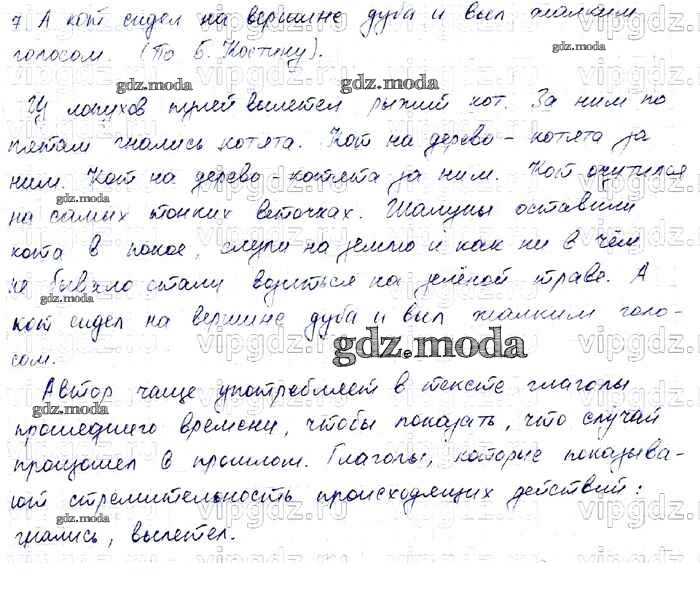 7. А кот сидел на вершине дуба и выл жалким
голосом. (По Б. Костину).
Из лопухов пулей вылетел рыжий кот. За ним по
пятам гнались котята. Кот на дерево - котята за
ним. Кот на дерево - котята за ним. Кот очутился
на самых тонких веточках. Шалуны оставили
кота в покое, слезли на землю и как ни в чём
не бывало стали возиться на зелёной траве. А
кот сидел на вершине дуба и выл жалким голо-
сом.
Автор чаще употребляет в тексте глаголы
прошедшего времени, чтобы показать, что случай
произошел в прошлом. Глаголы, которые показыва-
ют стремительность происходящих действий:
гнались, вылетел.
gdz.moda
gdz.moda
gdz.moda
gdz.moda
gdz.moda
gdz.moda
gdz.moda